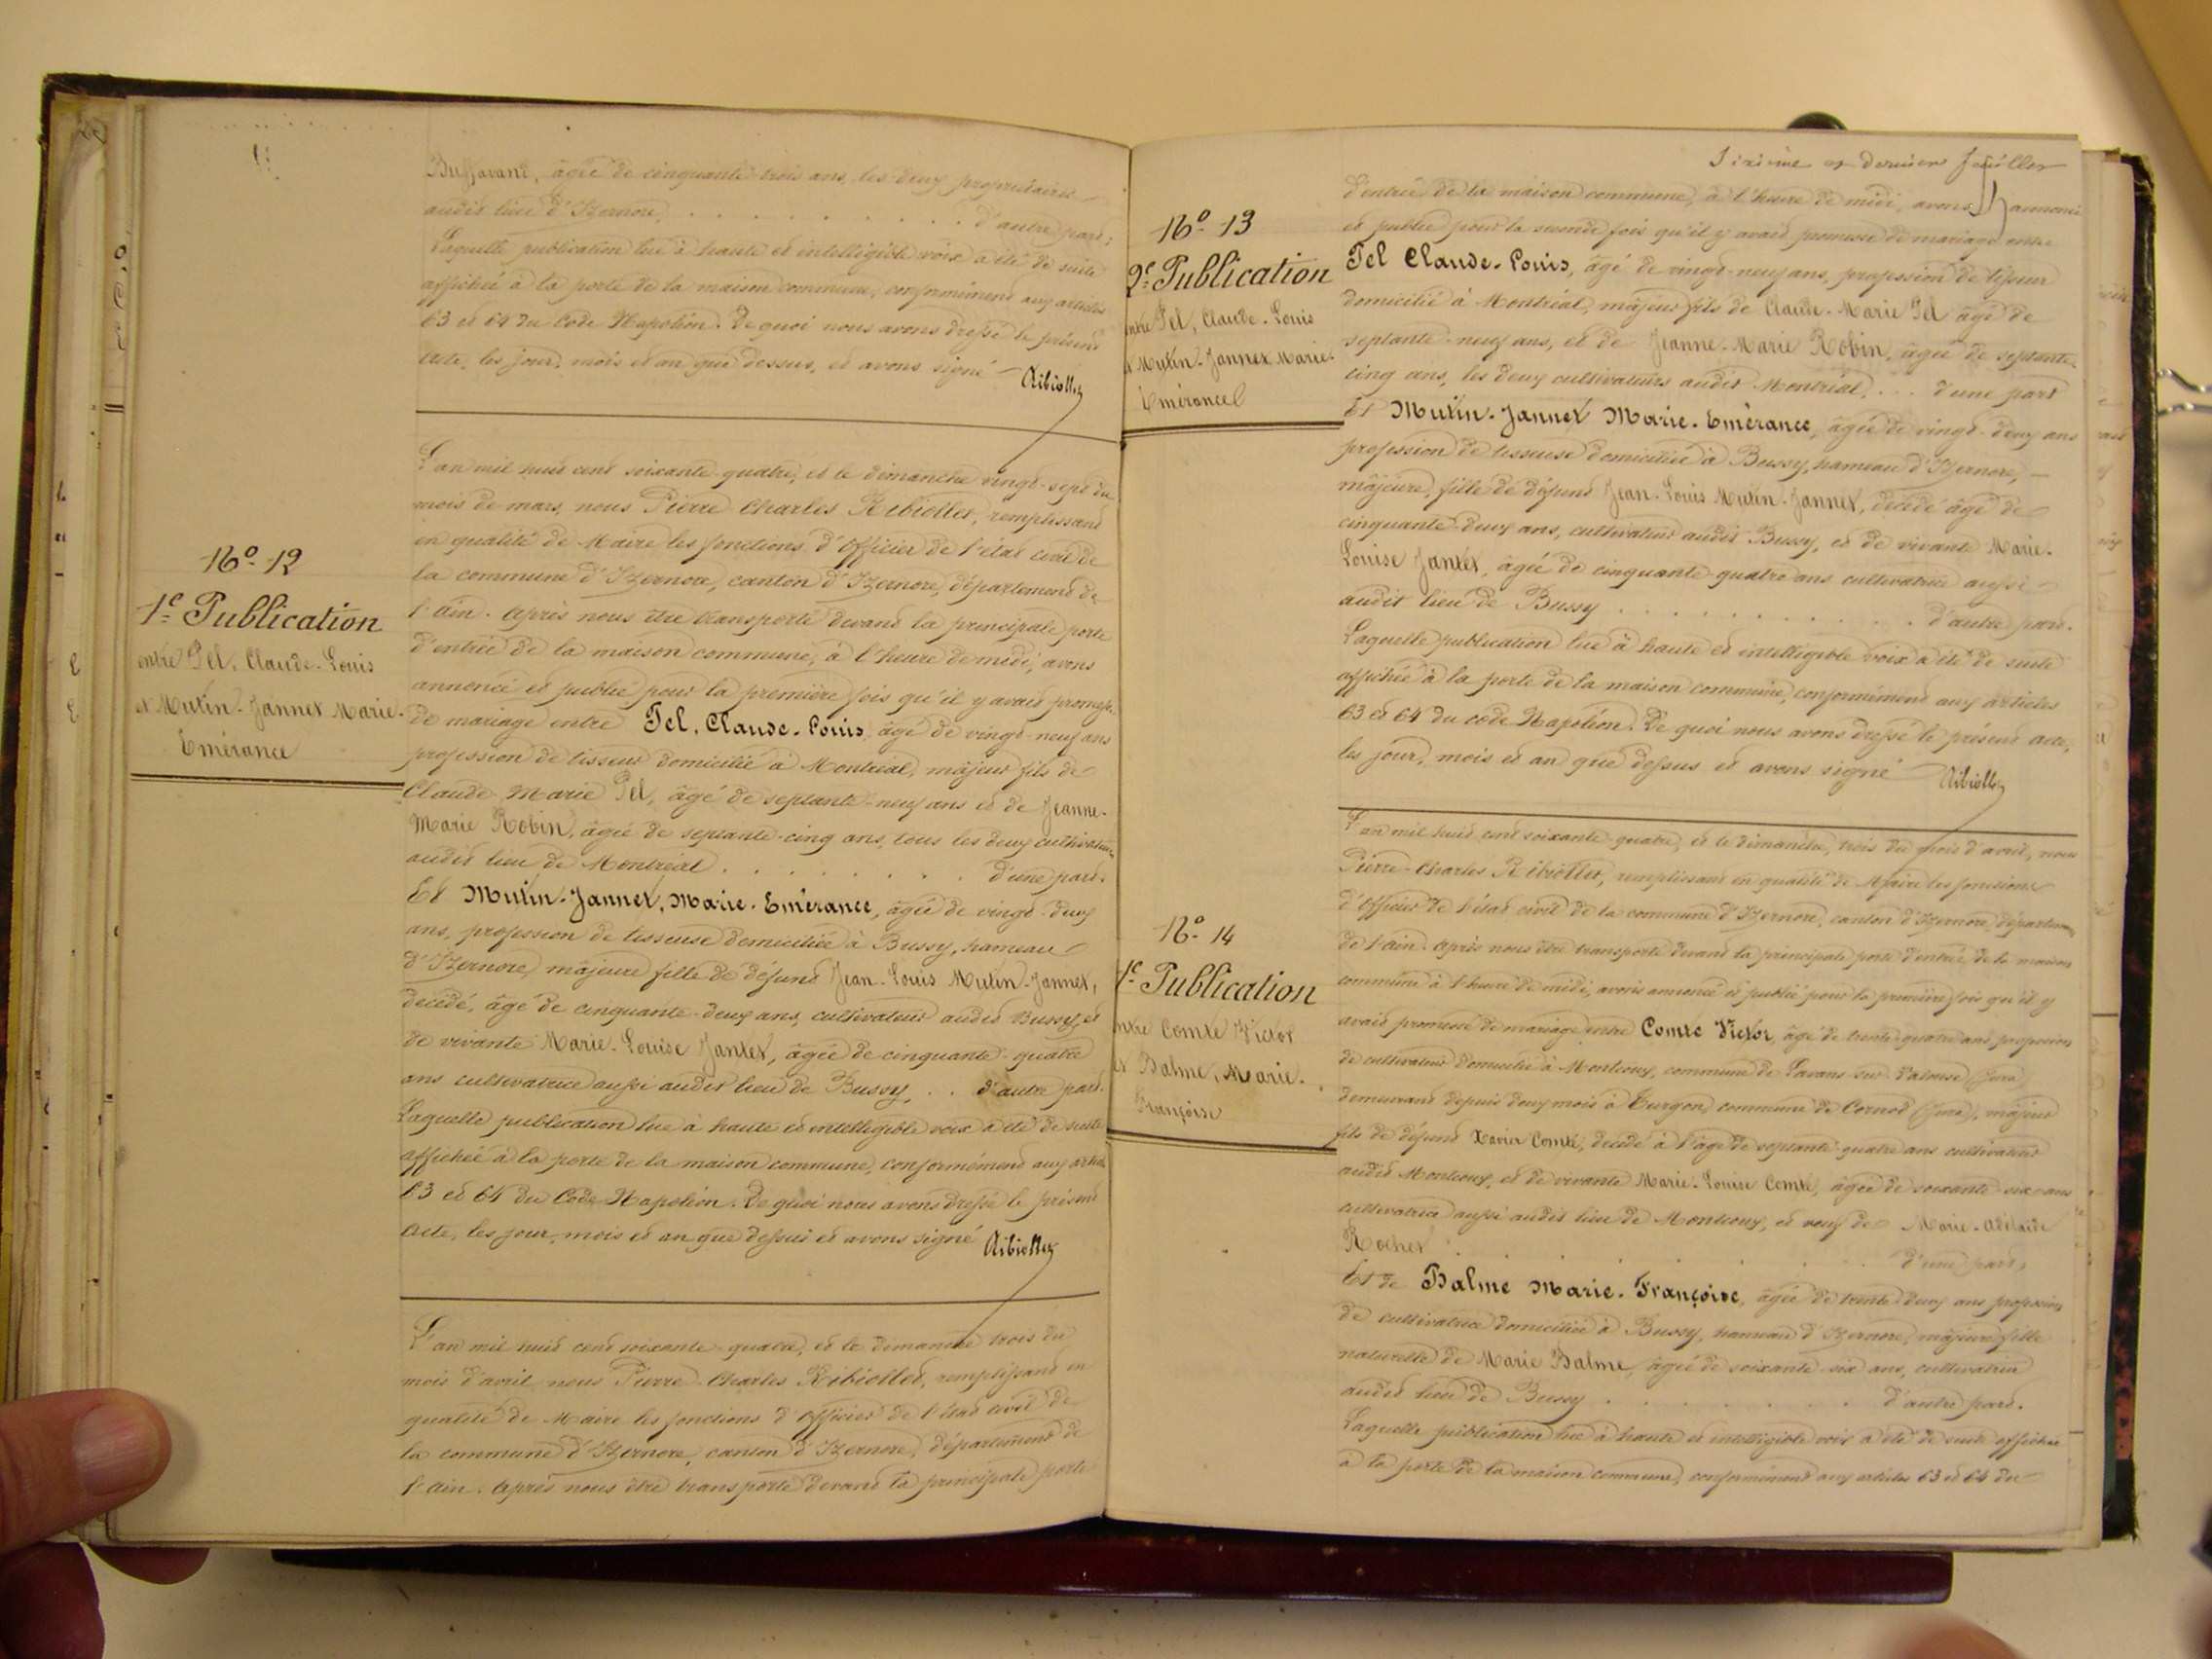 Buffavand, âgée de cinquante-trois ans, les deux propriétaires
audit lieu d'Izernore, . . . . . . . . . . d'autre part;
Laquelle publication lue à haute et intelligible voix a été de suite
affichée à la porte de la maison commune, conformément aux articles
63 et 64 du Code Napoléon. De quoi nous avons dressé le présent
acte, les jour, mois et an que dessus, et avons signé
Ribiollet
No. 12
1e Publication
entre Pel, Claude-Louis
et Mutin-Jannet Marie-
Emérance
L'an mil huit cent soixante-quatre, et le dimanche vingt-sept du
mois de mars, nous Pierre Charles Ribiollet, remplissant
en qualité de Maire les fonctions d'officier de l'état civil de
la commune d'Izernore, canton d'Izernore, département de
l'ain. après nous être transporté devant la principale porte
d'entrée de la maison commune, à l'heure de midi, avons
annoncé et publié pour la première fois qu'il y avait promesse
de mariage entre Pel, Claude-Louis, âgé de vingt-neuf ans
profession de tisseur domicilié à Montréal, majeur fils de
Claude Marie Pel, âgé de septante-neuf ans et de Jeanne-
Marie Robin, âgée de septante-cinq ans, tous les deux cultivateurs
audit lieu de Montréal . . . . . . . . . d'une part.
Et Mutin-Jannet, Marie-Emérance, âgée de vingt-deux
ans, profession de tisseuse domiciliée à Bussy, hameau
d'Izernore, majeure fille de défunt Jean-Louis Mutin-Jannet,
décédé, âgé de cinquante-deux ans, cultivateur audit Bussy, et
de vivante Marie-Louise Jantet, âgée de cinquante-quatre
ans cultivatrice aussi audit lieu de Bussy, . . d'autre part.
Laquelle publication lue à haute et intelligible voix a été de suite
affichée à la porte de la maison commune, conformément aux articles
63 et 64 du Code Napoléon. De quoi nous avons dressé le présent
acte, les jour, mois et an que dessus et avons signé
Ribiollet
L'an mil huit cent soixante-quatre, et le dimanche trois du
mois d'avril nous Pierre Charles Ribiollet, remplissant en
qualité de Maire les fonctions d'officier de l'état civil de
la commune d'Izernore, canton d'Izernore, département de
l'ain. après nous être transporté devant la principale porte
Sixième et dernier feuillet
No. 13
2e Publication
entre Pel, Claude-Louis
et Mutin-Jannet Marie-
Emérance
d'entrée de la maison commune, à l'heure de midi, avons annoncé
et publié pour la seconde fois qu'il y avait promesse de mariage entre
Pel Claude-Louis, âgé de vingt-neuf ans, profession de tisseur
domicilié à Montréal, majeur fils de Claude-Marie Pel âgé de
septante-neuf ans, et de Jeanne-Marie Robin, âgée de septante-
cinq ans, les deux cultivateurs audit Montréal, . . . d'une part
Et Mutin-Jannet Marie-Emérance, âgée de vingt-deux ans
profession de tisseuse domiciliée à Bussy, hameau d'Izernore,
majeure, fille de défunt Jean-Louis Mutin-Jannet, décédé âgé de
cinquante-deux ans, cultivateur audit Bussy, et de vivante Marie-
Louise Jantet, âgée de cinquante-quatre ans cultivatrice aussi
audit lieu de Bussy . . . . . . . . . . . d'autre part.
Laquelle publication lue à haute et intelligible voix a été de suite
affichée à la porte de la maison commune, conformément aux articles
63 et 64 du code Napoléon. De quoi nous avons dressé le présent acte,
les jour, mois et an que dessus et avons signé
Ribiollet
No. 14
1e Publication
entre Comte Victor
et Balme, Marie-
Françoise
L'an mil huit cent soixante-quatre, et le dimanche, trois du mois d'avril, nous
Pierre-Charles Ribiollet, remplissant en qualité de Maire les fonctions
d'officier de l'état civil de la commune d'Izernore, canton d'Izernore, département
de l'ain. après nous être transporté devant la principale porte d'entrée de la maison
commune à l'heure de midi, avons annoncé et publié pour la première fois qu'il y
avait promesse de mariage entre Comte Victor, âgé de trente-quatre ans profession
de cultivateur domicilié à Montcoux, commune de Lavans-sur-Valouse (Jura)
demeurant depuis deux mois à Turgon, commune de Cornod (Jura), majeur
fils de défunt Xavier Comte, décédé à l'âge de septante-quatre ans cultivateur
audit Montcoux, et de vivante Marie-Louise Comte, âgée de soixante-six ans
cultivatrice aussi audit lieu de Montcoux, et veuf de Marie-Adélaïde
Rochet . . . . . . . d'une part,
Et de Balme Marie-Françoise, âgée de trente-deux ans profession
de cultivatrice domiciliée à Bussy, hameau d'Izernore, majeure fille
naturelle de Marie Balme, âgée de soixante-six ans, cultivatrice
audit lieu de Bussy . . . . . . . . d'autre part.
Laquelle publication lue à haute et intelligible voix a été de suite affichée
à la porte de la maison commune, conformément aux articles 63 et 64 du